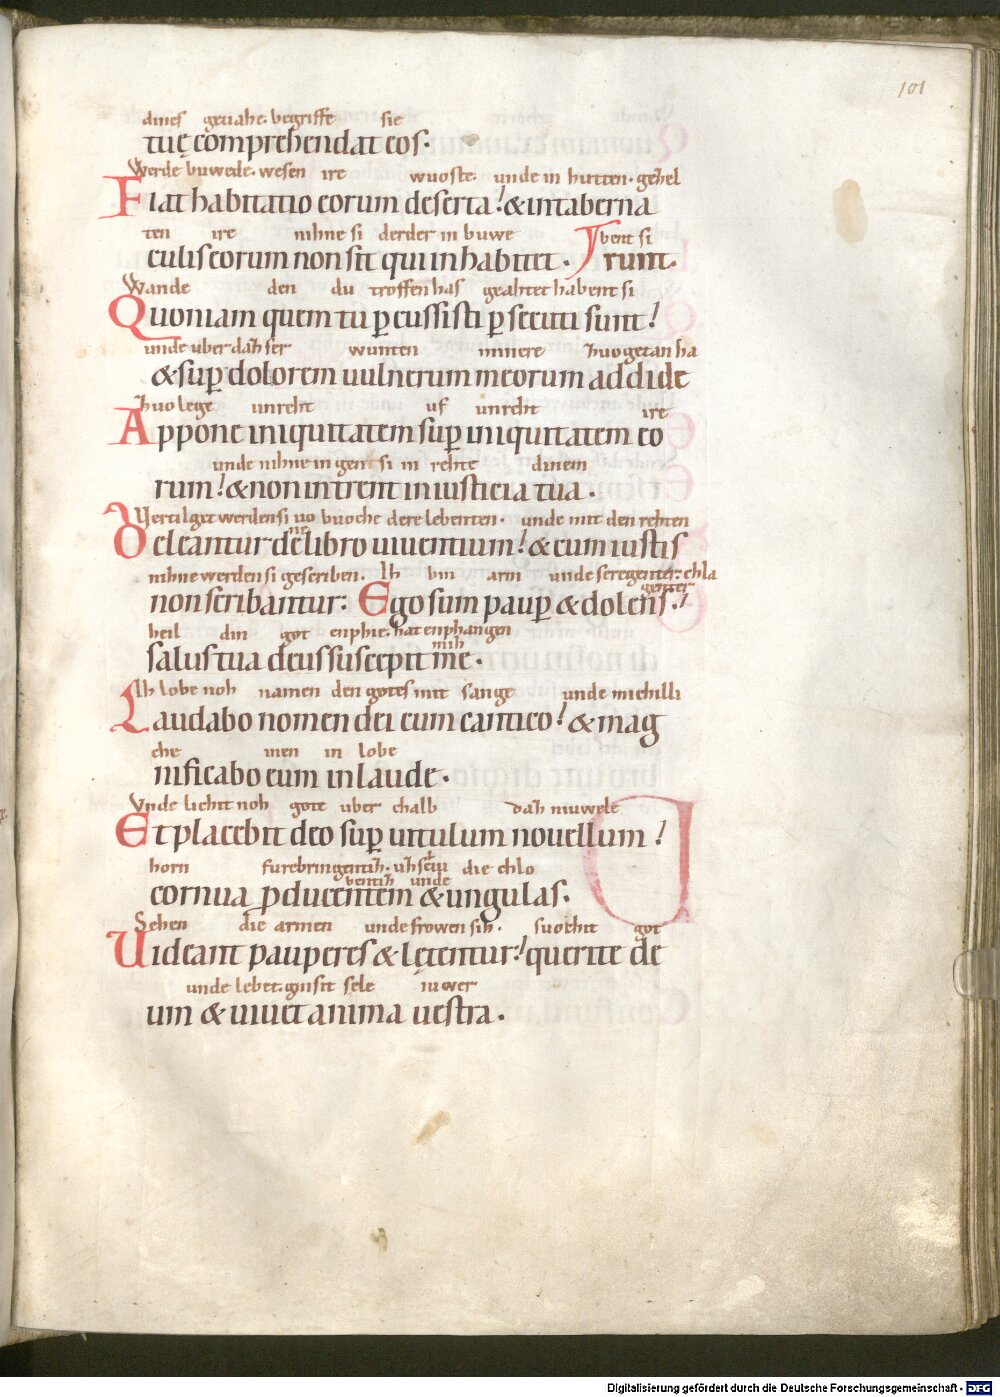 101
dines gevahe. begriffe sie
tuę comprehendat eos.
Werde buwede. wesen ire wuoste. unde in hutten. gehel
Fiat habitatio eorum deserta! & in taberna
ten ire nihne si derder in buwe
culis eorum non sit qui inhabitet.
bent si
runt.
Wande den du troffen has geahtet habent si
Quoniam quem tu ꝑcussisti ꝑsecuti sunt!
unde uber daz ser wunten minere huo getan ha
& sup̱ dolorem uulnerum meorum addide
huo lege unreht uf unreht ire
Appone iniquitatem sup̱ iniquitatem eo
unde nihne in gent si in rehte dinem
rum! & non intrent in iusticia tua.
Vertilget werden si buoche dere lebenten. unde mit den rehten
Deleantur de libro uiuentium! & cum iustis
nihne werden si gescriben. Ih bin arm unde seregenter. chla
non scribantur: Ego sum paup̱ & dolens.
heil din got enphie. hat enphangen
mih
salus tua deus suscepit me.
Ih lobe noh namen den gotes mit sange unde michilli
Laudabo nomen dei cum cantico! & mag
che inen in lobe
nificabo eum in laude.
Unde lichit noh gote uber chalb daz niuwele
Et placebit deo sup̱ uitulum nouellum!
horn furebringentiz. die chlo
unde
cornua ꝓducentem & ungulas.
Sehen die armen unde frowen sih. suochit got
Uideant pauperes & lętentur! querite de
unde lebet. gnisit sele iuwer
um & uiuet anima uestra.
Digitalisierung gefördert durch die Deutsche Forschungsgemeinschaft - DFG